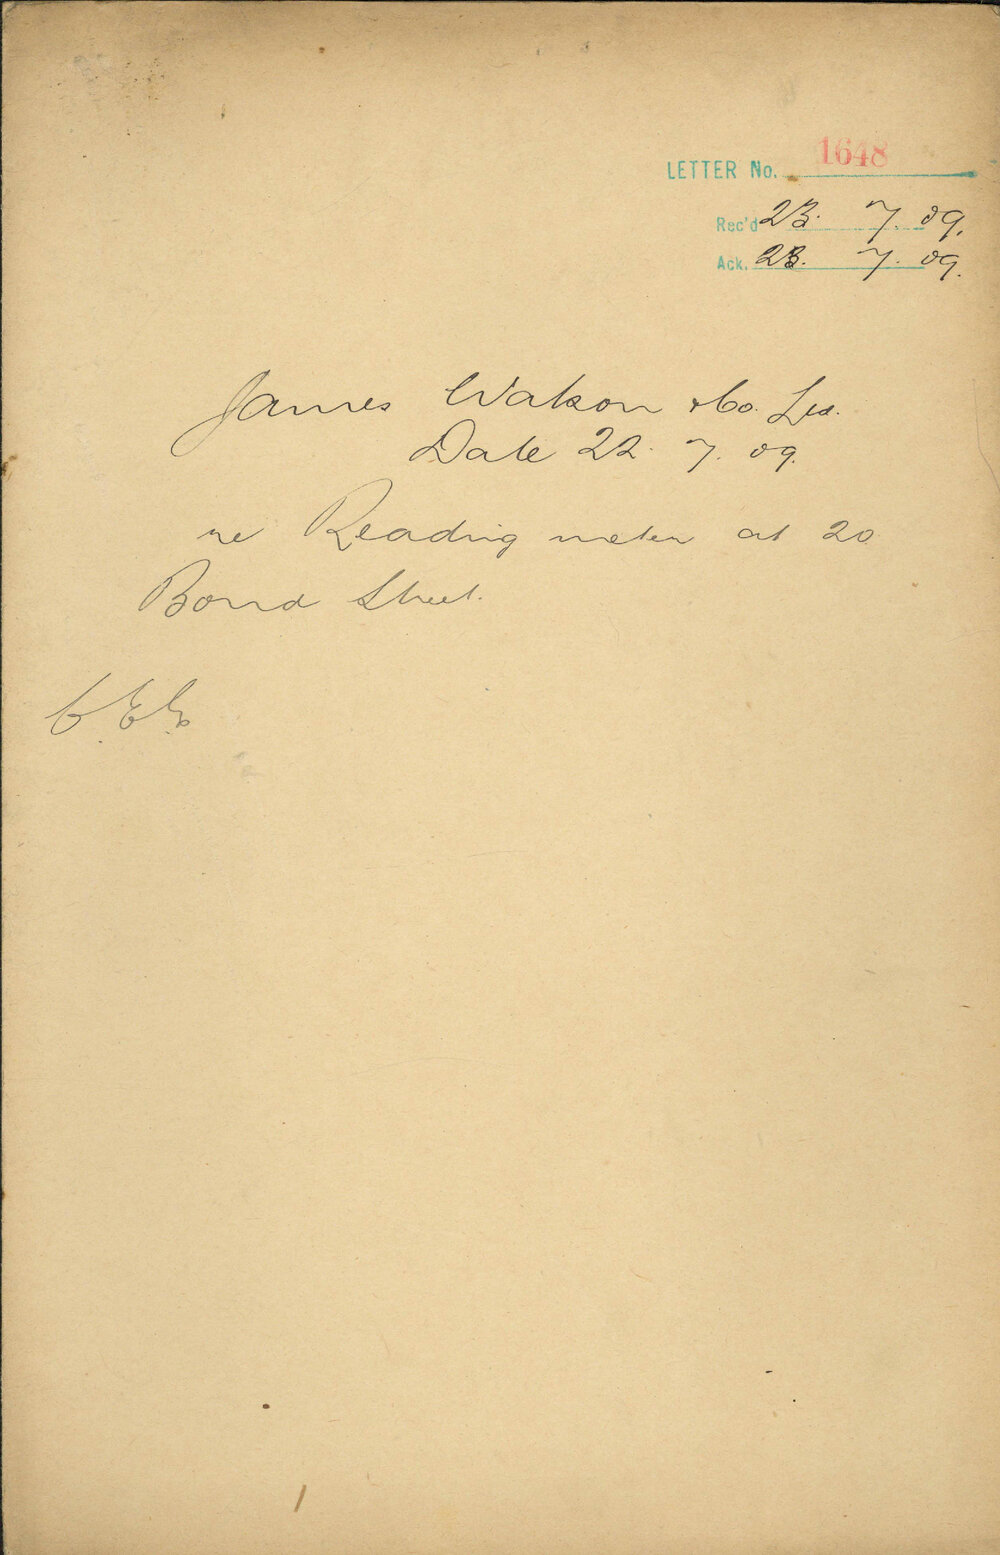 LETTER No. 1648
Rec'd 23. 7. 09.
Ack. 23. 7. 09.
James Watson & Co. Ltd.
Date 22. 7. 09.
re Reading meter at 20
Bond Street.